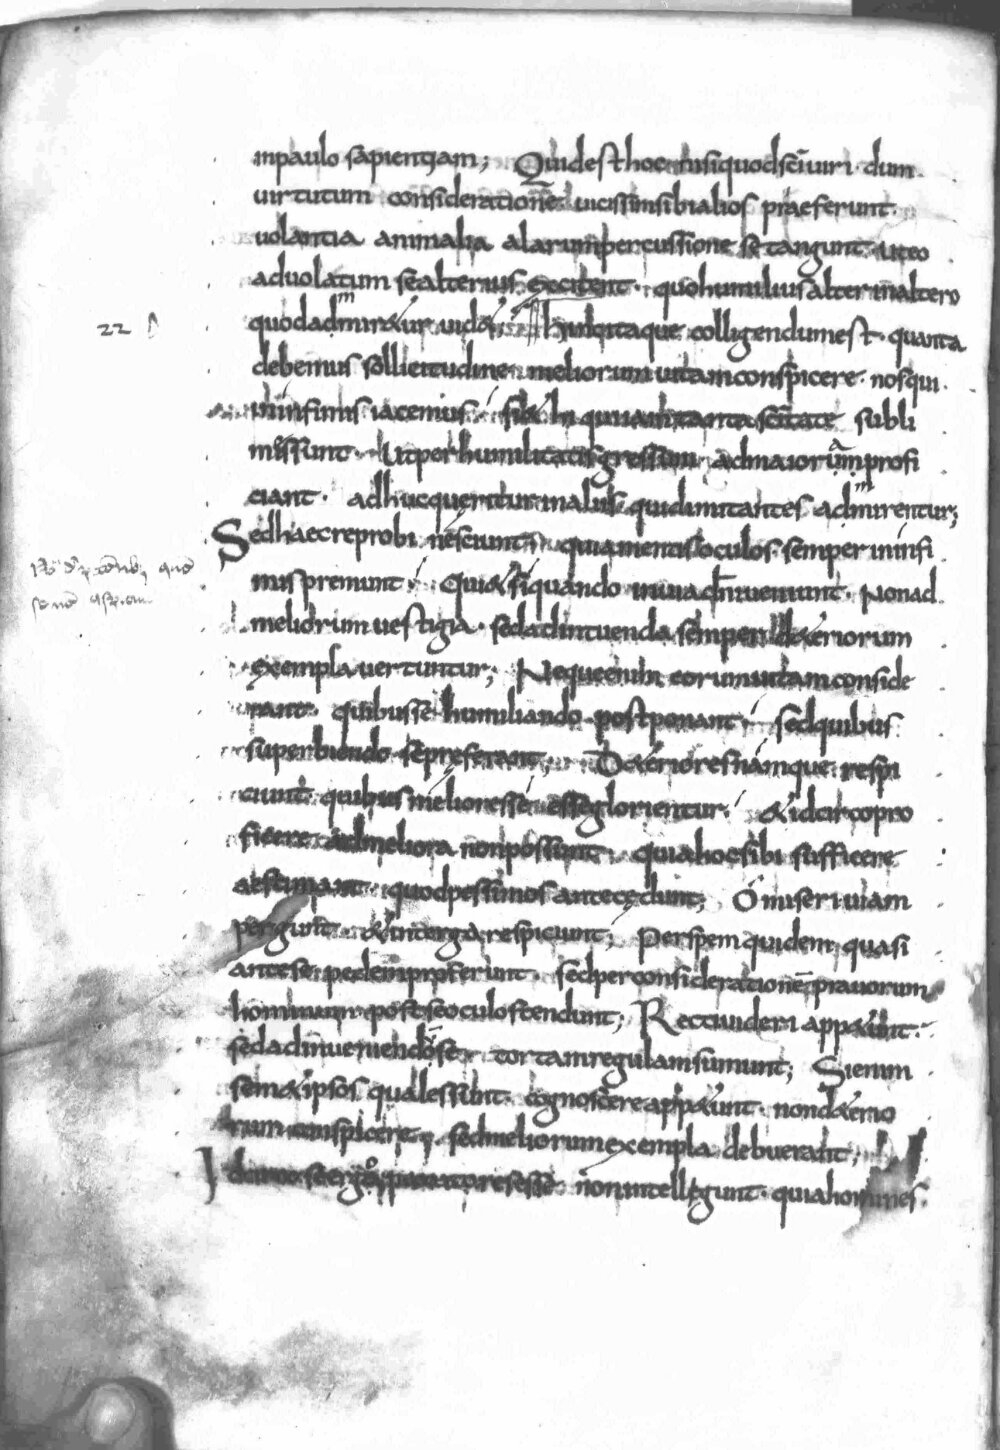 inpaulo sapientiam; Quidesthoc nisiquodsc̄iuiri · dum
uirtutum consideratione uicissimsibialios praeferunt ·
uolantia animalia alarumpercussione setangunt · uteo
aduolatum sealterius excitent · quohumiliusalterinaltero
22 quodadmiretur uidet; hincitaque colligendumest · quanta
debemus sollicitudine meliorum uitamconspicere · nosqui
ininfimis iacemus · sihi quiiamtanta sc̄itate subli
messunt · Utperhumilitatisgressum · admaiorumprofi
ciant · adhucqueruntur inaliis quidimitantes admirentur;
Sedhaecreprobi nesciunt · quiamentisoculos semper ininfi
mispremunt · Qui&siquando inuiad̄niueniunt · Nonad
meliorumuestigia · sedadintuenda semper d&eriorum
exemplauertuntur; Nequeenim eorumuitamconside
rant · quibusse humiliando postponant · sedquibus
superbiendo sepreferant; D&erioresnamque respi
ciunt quibusmelioresse esseglorientur · &idcircopro
ficere admeliora nonpossunt · quiahocsibi sufficere
aestimant · quodpessimos antecedunt; O miseri uiam
pergunt · &interga respiciunt; Perspem quidem quasi
antese pedemproferunt · sedperconsiderationē prauorum
hominum postseoculostendunt; Rectiuideri appetunt ·
sedadinueniendose tortamregulamsumunt; Sienim
sem&ipsos qualessunt cognoscere appetunt · nond&erio
rum conspicere · sedmeliorumexempla debuerant;
Idcirco seergo peccatoresesse nonintellegunt · quiahomines